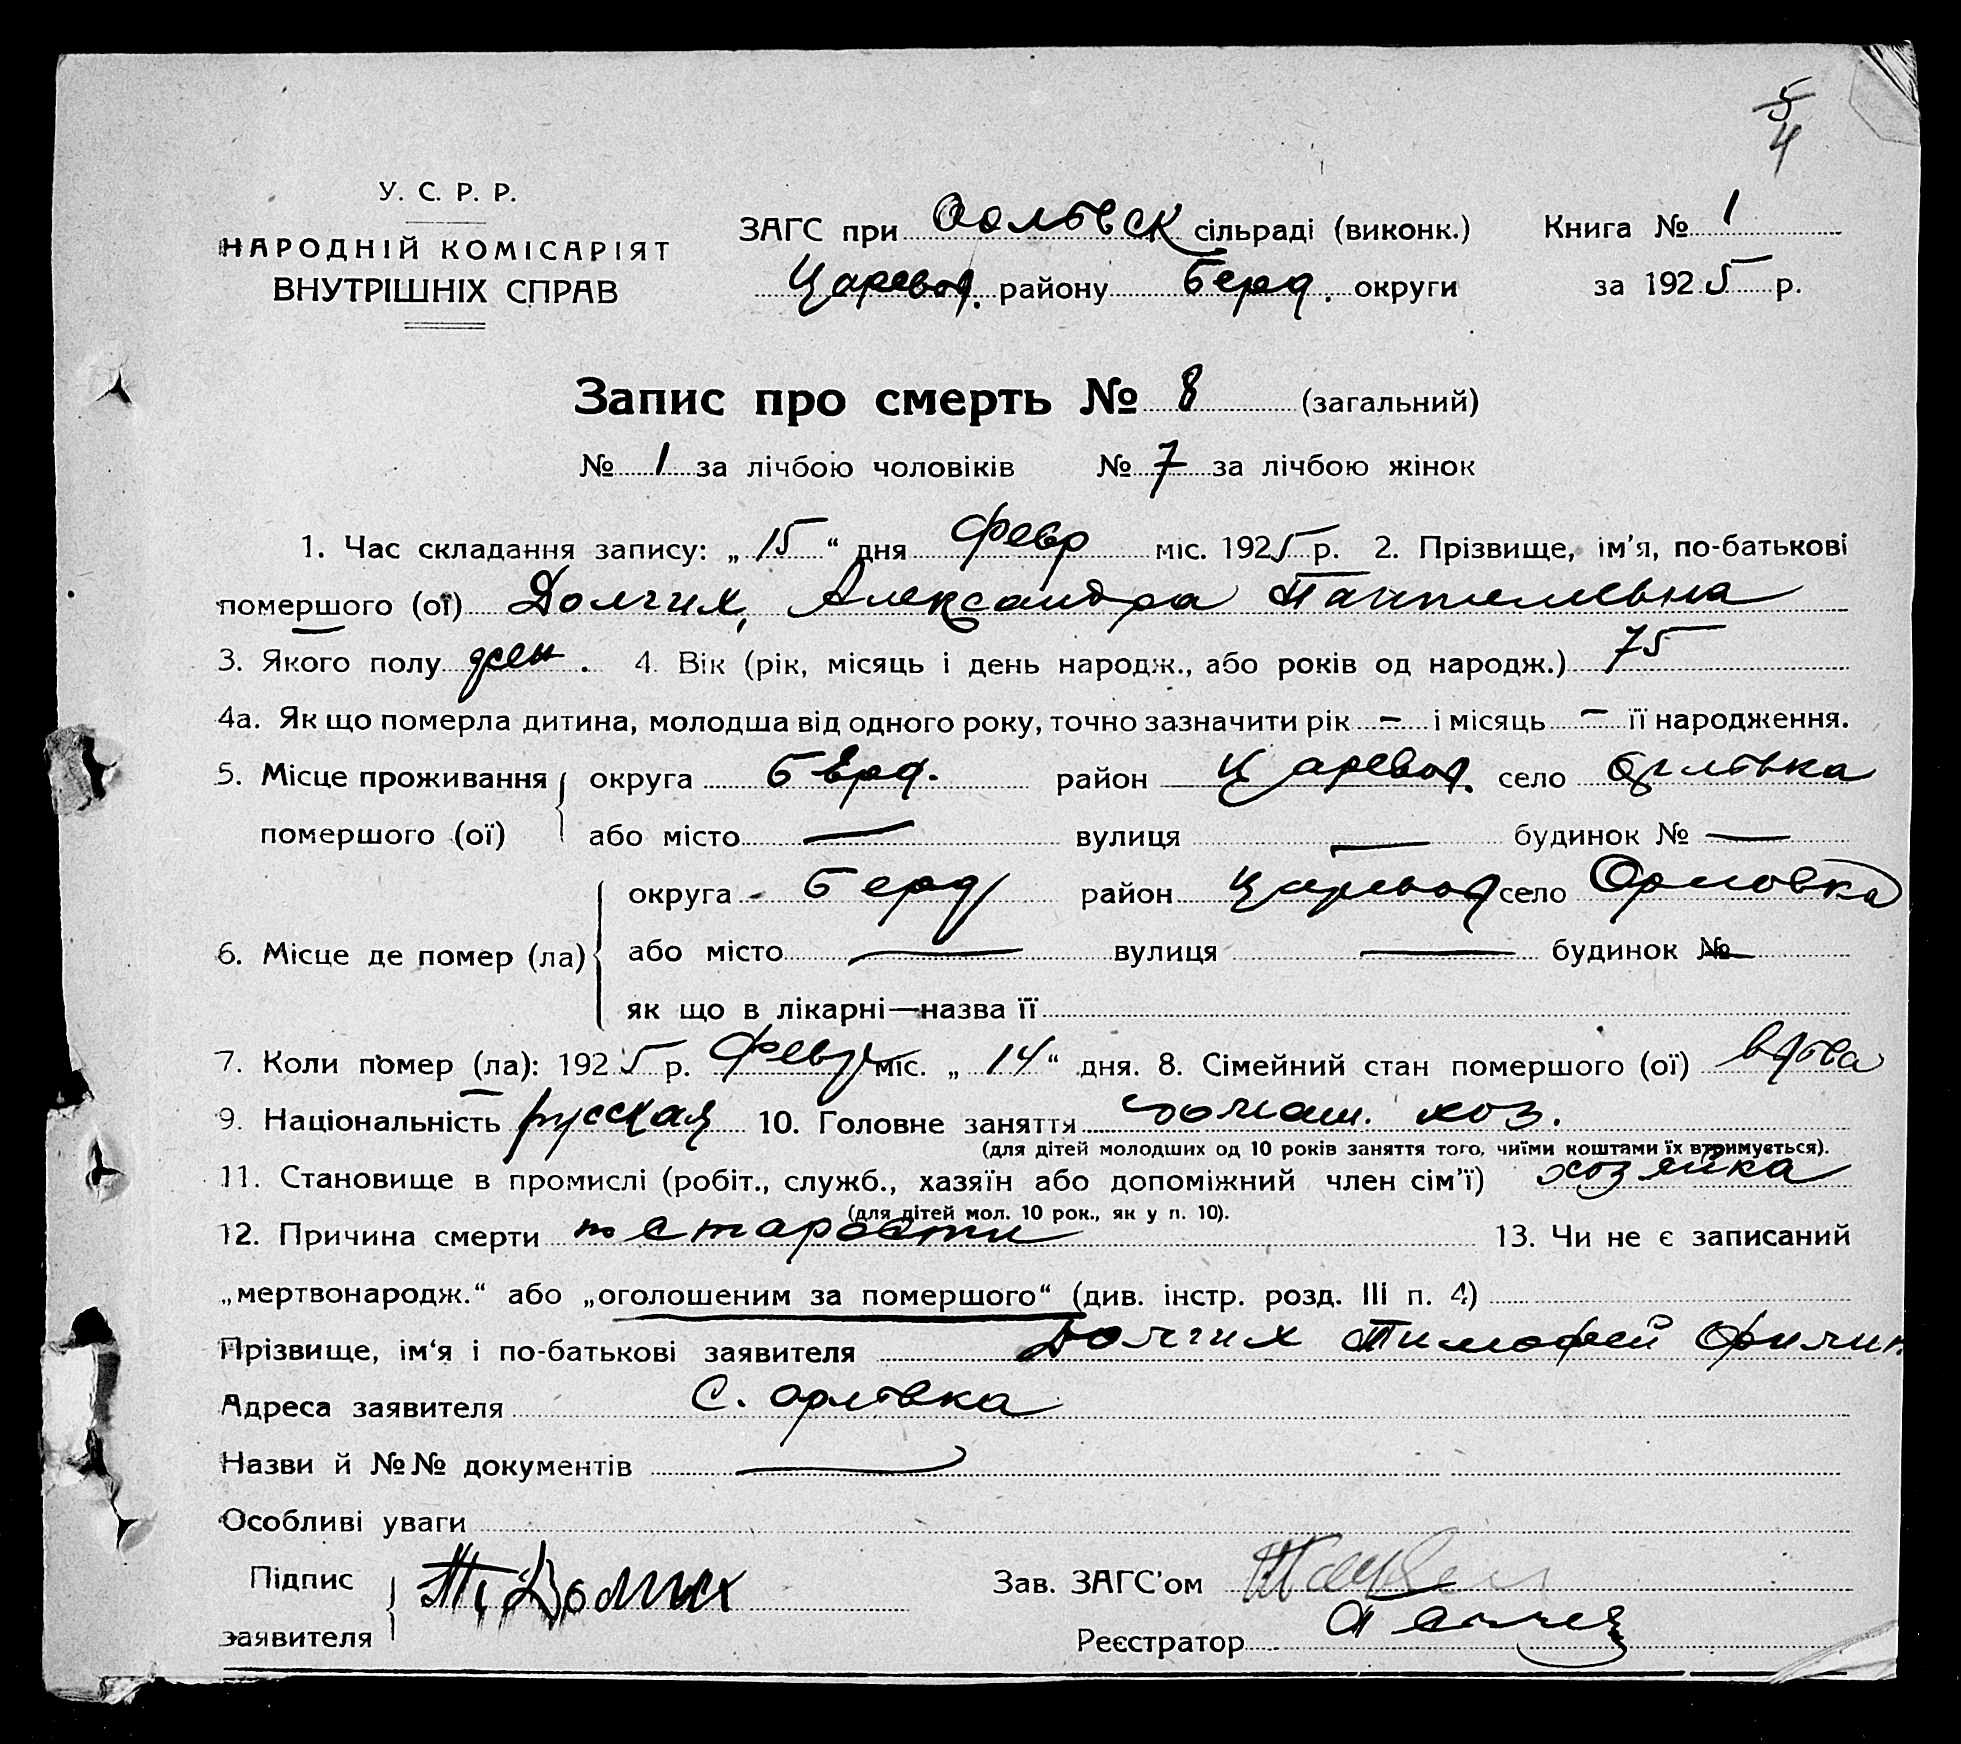 5
4
У. С. Р. Р.
НАРОДНІЙ КОМІСАРІЯТ
ВНУТРІШНІХ СПРАВ
ЗАГС при сільраді (виконк.) Книга № 1
Царевод. району Берд. округи за 1925 р.
Запис про смерть № 8 (загальний)
№ 1 за лічбою чоловіків № 7 за лічбою жінок
1. Час складання запису: „15“ дня февр міс. 1925 р. 2. Прізвище, ім'я, по-батькові
помершого (ої) Долгих, Александра Пантелевна
3. Якого полу жен. 4. Вік (рік, місяць і день народж., або років од народж.) 75
4а. Як що померла дитина, молодша від одного року, точно зазначити рік – і місяць – її народження.
5. Місце проживання округа Берд. район Царевод. село Орловка
помершого (ої) або місто — вулиця — будинок № —
округа Берд район Царевод село Орловка
6. Місце де помер (ла) або місто — вулиця — будинок № —
як що в лікарні—назва її
7. Коли помер (ла): 1925 р. февр міс. „14“ дня. 8. Сімейний стан помершого (ої) вдова
9. Національність русская 10. Головне заняття домаш. хоз.
(для дітей молодших од 10 років заняття того, чиїми коштами їх втримується).
11. Становище в промислі (робіт., служб., хазяїн або допоміжний член сім'ї) хозяйка
(для дітей мол. 10 рок., як у п. 10).
12. Причина смерти по старости 13. Чи не є записаний
„мертвонародж.“ або „оголошеним за помершого“ (див. інстр. розд. III п. 4)
Прізвище, ім'я і по-батькові заявителя Долгих Тимофей Филип
Адреса заявителя С. Орловка
Назви й №№ документів —
Особливі уваги
Підпис Т. Долгих Зав. ЗАГС'ом
заявителя Реєстратор